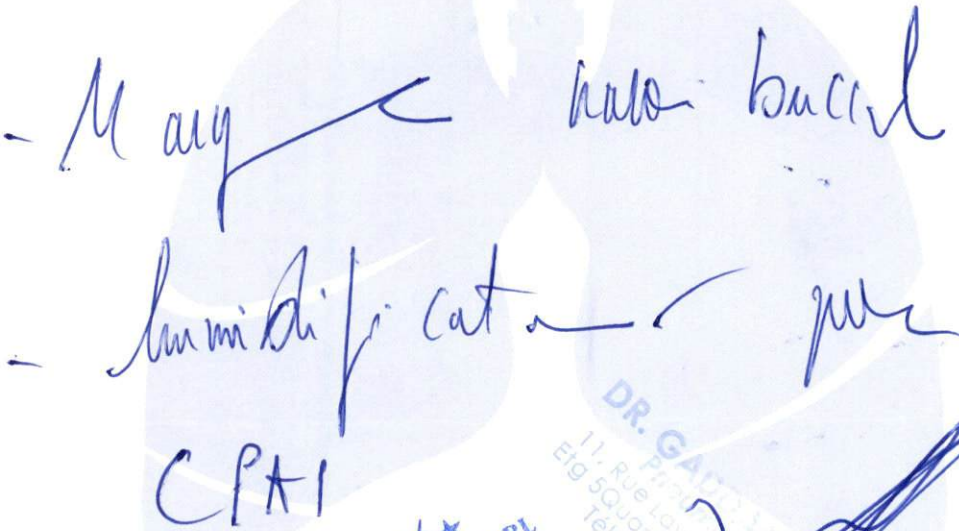 - Masque naso buccal
- humidificateur pour
CPAP
DR. GA
11, Rue La
Etg 5 Qua
Tél